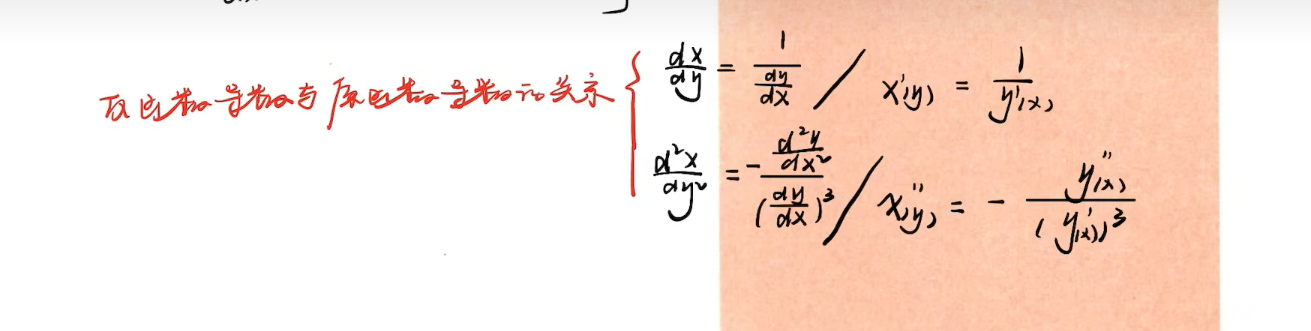 反函数导数与原函数导数的关系
dx/dy = 1/(dy/dx) / x'(y) = 1/y'(x)
d²x/dy² = -(d²y/dx²)/(dy/dx)³ / x''(y) = - y''(x)/(y'(x))³